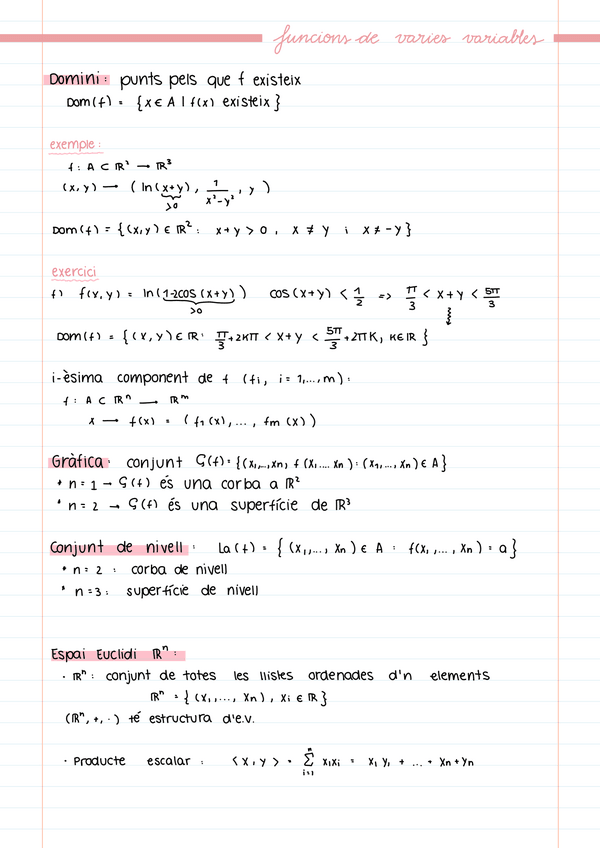 funcions de varies variables
Domini: punts pels que f existeix
Dom(f) = {x ∈ A | f(x) existeix}
exemple:
f: A ⊂ ℝ² → ℝ³
(x, y) → (ln(x+y), 1/(x²-y²), y)
>0
Dom(f) = {(x,y) ∈ ℝ²: x+y > 0, x ≠ y i x ≠ -y}
exercici
f) f(x,y) = ln(1-2cos(x+y)) cos(x+y) < 1/2 => π/3 < x+y < 5π/3
>0
Dom(f) = {(x,y) ∈ ℝ: π/3 + 2kπ < x+y < 5π/3 + 2πk, k∈ℝ}
i-èsima component de f (fi, i = 1,...,m):
f: A ⊂ ℝⁿ → ℝᵐ
x → f(x) = (f₁(x), ..., fm(x))
Gràfica: conjunt G(f) = {(x₁,...,xn, f(x₁...xn): (x₁,...,xn) ∈ A}
• n = 1 → G(f) és una corba a ℝ²
• n = 2 → G(f) és una superfície de ℝ³
Conjunt de nivell: La(f) = {(x₁,..., xn) ∈ A : f(x₁,..., xn) = a}
• n = 2 : corba de nivell
• n = 3 : superfície de nivell
Espai Euclidi ℝⁿ:
· ℝⁿ: conjunt de totes les llistes ordenades d'n elements
ℝⁿ = {(x₁,..., xn), xi ∈ ℝ}
(ℝⁿ, +, ·) té estructura d'e.v.
· Producte escalar: <x, y> = n Σ i=1 xixi = x₁y₁ + ... + xn+yn